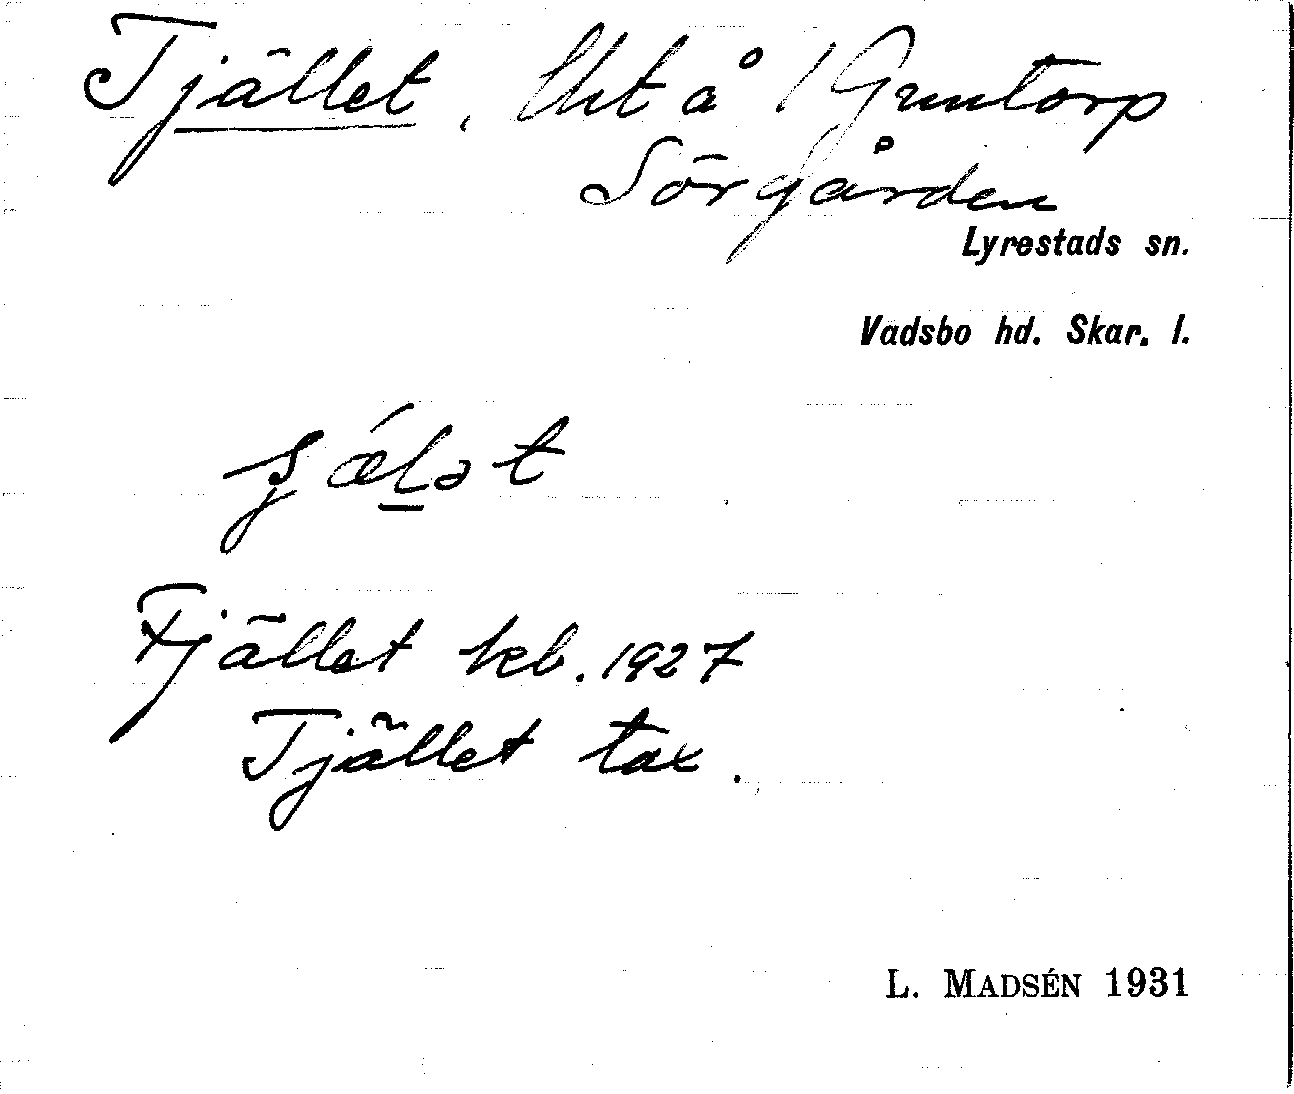 Tjället, lht å 1 Gumtorp
Sörgården
Lyrestads sn.
Vadsbo hd. Skar. l.
Fjället kb. 1927
Tjället tax.
L. MADSÉN 1931